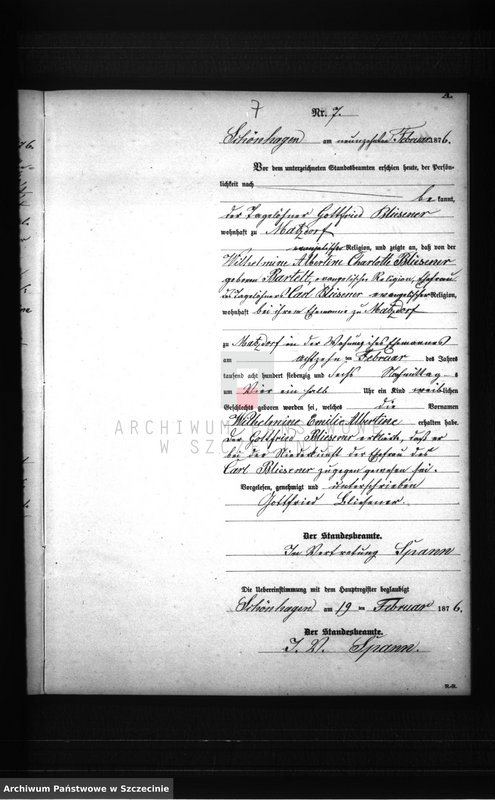 A.
7
Nr. 7.
Schönhagen am neunzehnten Februar 1876.
Vor dem unterzeichneten Standesbeamten erschien heute, der Persön-
lichkeit nach
bekannt,
der Tagelöhner Gottfried Blüsener
wohnhaft zu Matzdorf
evangelischer Religion, und zeigte an, daß von der
Wilhelmine Albertine Charlotte Blüsener
geborene Bartelt, evangelischer Religion, Ehefrau
Tagelöhners Carl Blüsener evangelischer Religion,
wohnhaft bei ihrem Ehemanne zu Matzdorf
zu Matzdorf in der Wohnung ihres Ehemannes
am achtzehn ten Februar des Jahres
tausend acht hundert siebenzig und sechs Nachmittags
um Vier ein halb Uhr ein Kind weiblichen
Geschlechts geboren worden sei, welches die Vornamen
Wilhelmine Emilie Albertine erhalten habe.
der Gottfried Blüsener erklärte, daß er
bei der Niederkunft der Ehefrau des
Carl Blüsener zugegen gewesen sei.
Vorgelesen, genehmigt und unterschrieben
Gottfried Bliesener.
Der Standesbeamte.
In Vertretung Spann
Die Uebereinstimmung mit dem Hauptregister beglaubigt
Schönhagen am 19 ten Februar 1876.
Der Standesbeamte.
I. V. Spann.
ARCHIWUM PAŃSTWOWE
W SZCZECINIE
Archiwum Państwowe w Szczecinie